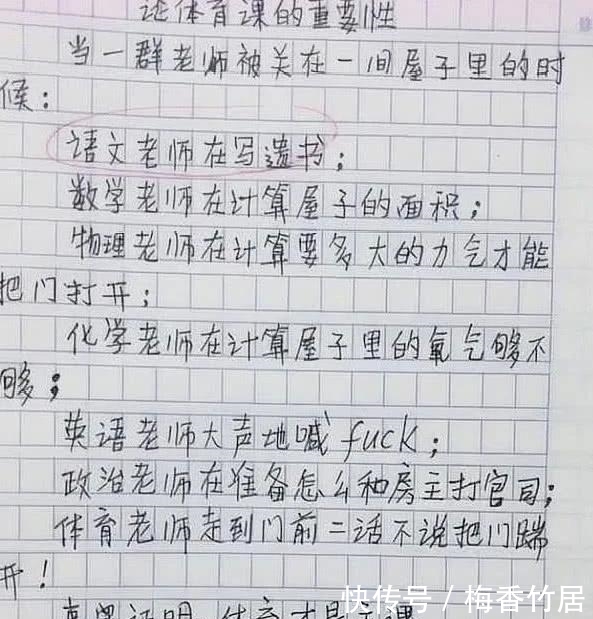 论体育课的重要性
当一群老师被关在一间屋子里的时
候：
语文老师在写遗书；
数学老师在计算屋子的面积；
物理老师在计算要多大的力气才能
把门打开；
化学老师在计算屋子里的氧气够不
够；
英语老师大声地喊fuck；
政治老师在准备怎么和房主打官司；
体育老师走到门前二话不说把门踹
开！
事实证明，体育才是主课
快传号/梅香竹居